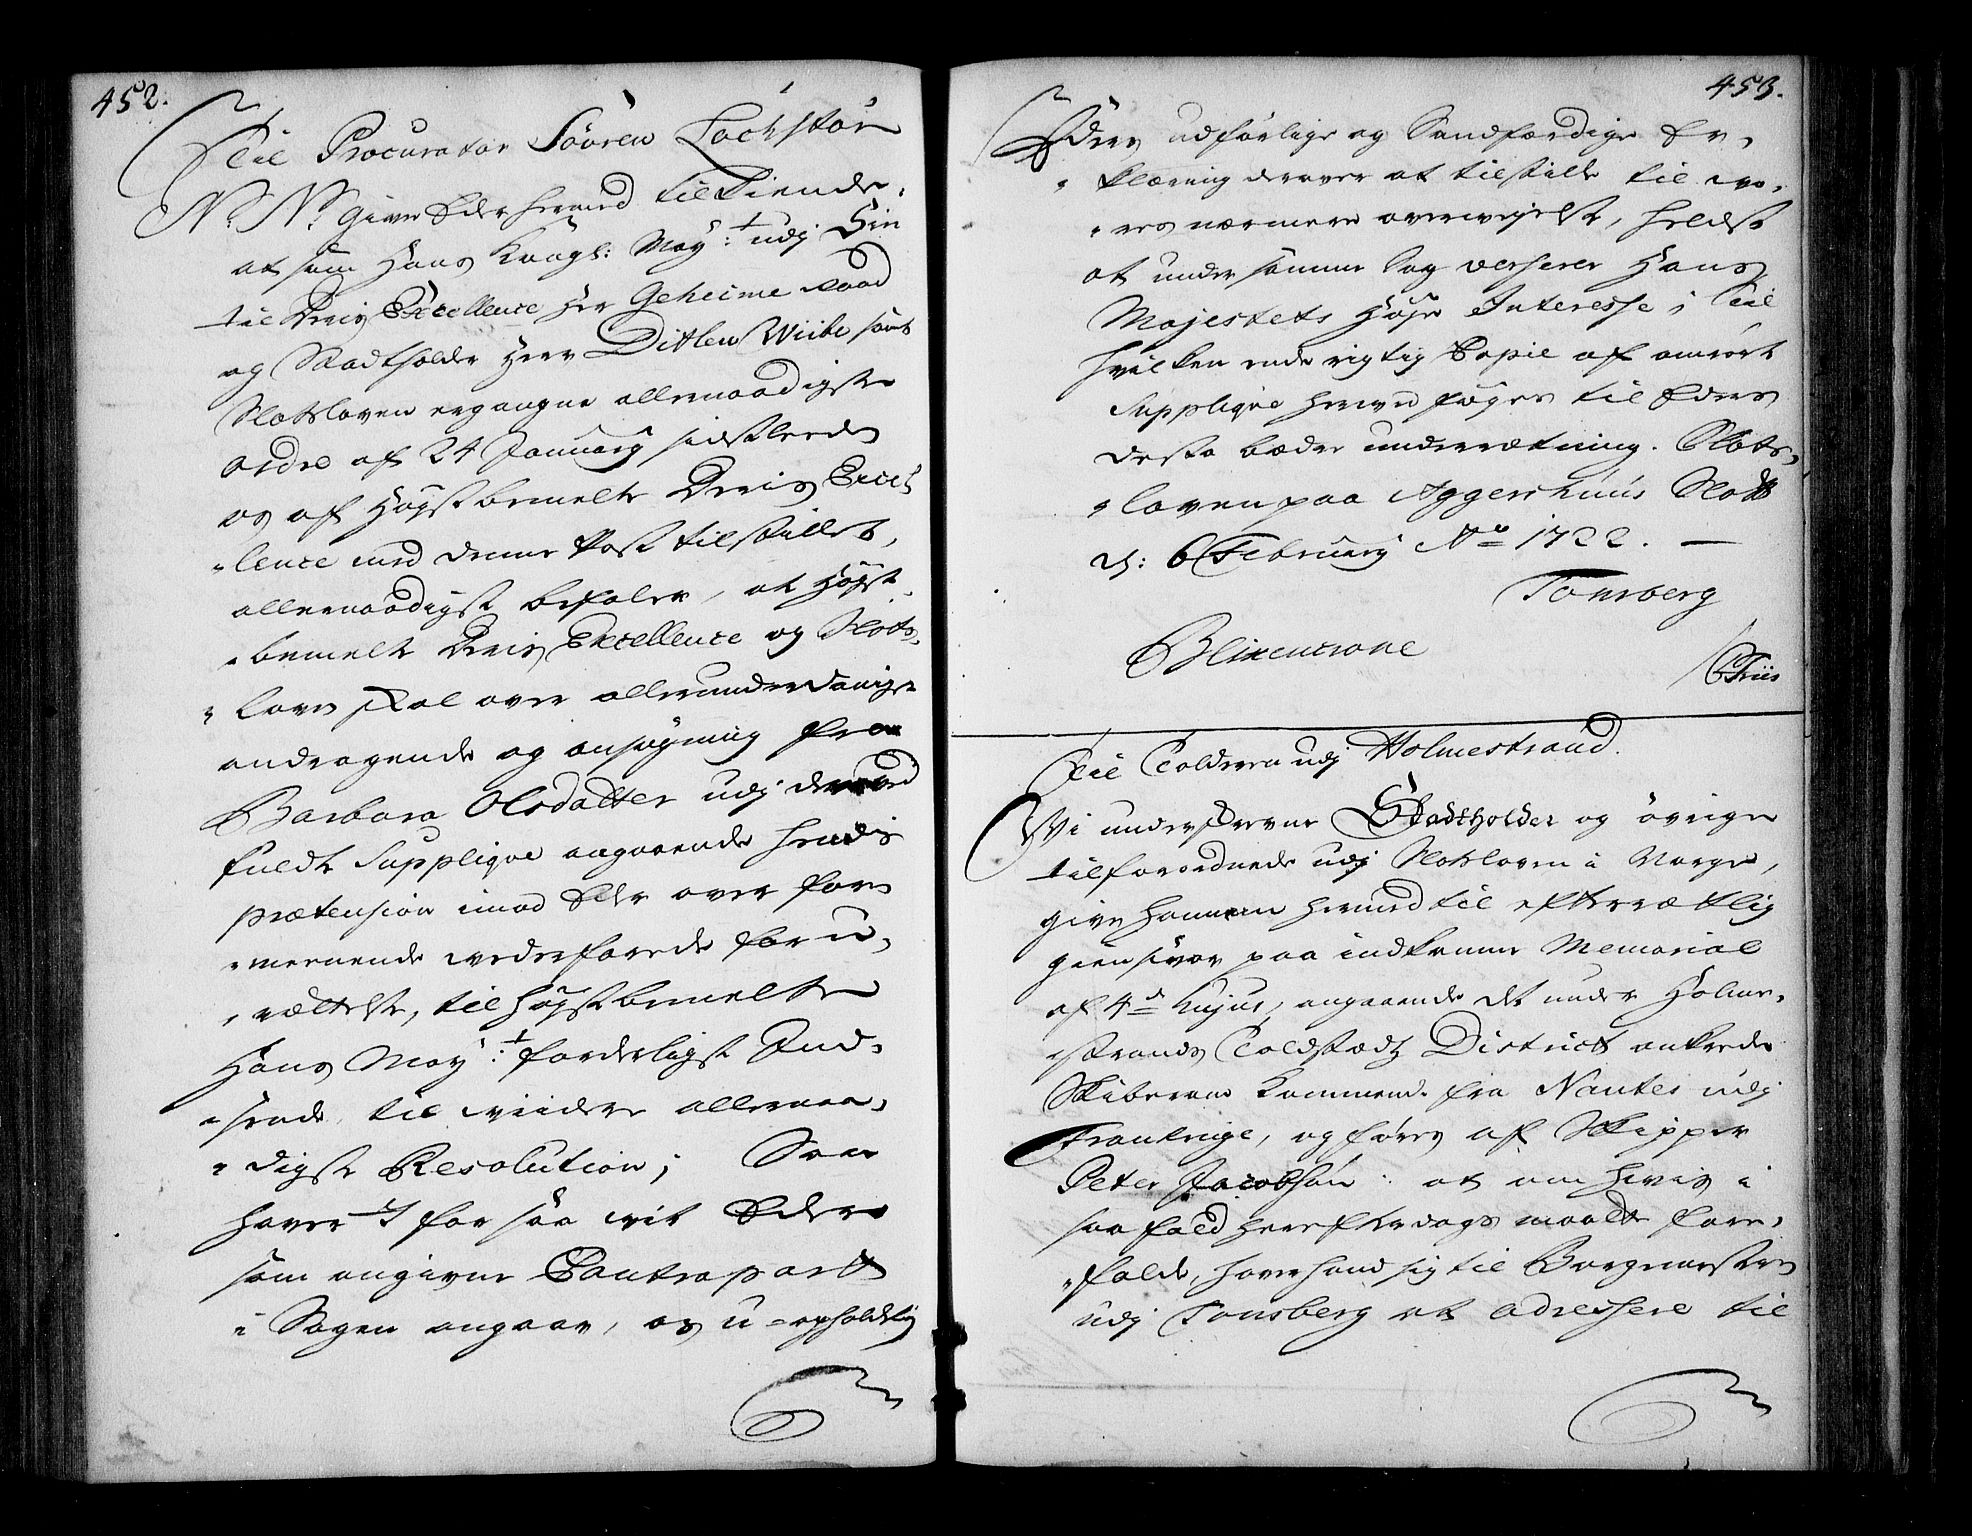 452.
Til Procurator Søøren Lochstør
N: N: Giver Eder hermed tilkiende,
at som Hans Kongl: May:t udj Sin
til Deris Excellence Hr Geheime Raad
og Stadtholder Herr Ditlev Wiibe samt
Slotsloven ergangne allernaadigste
Ordre af 24 January sidstleeden
os af Høystbemelte Deris Excel
lence med denne Post tilstillet,
allernaadigst befaler, at Høyst
bemelte Deris Excellence og Slots
Loven skal over allerunderdanigste
andragende og ansøgning fra
Barbara Olsdatter udj derved
fuldte Supplique angaaende hendis
prætension imod Eder over for
meenende wederfarede foru
rættelse, til Høystbemelte
Hans May:t forderligst Ind
sende til wiidere allernaa
digste Resolution; Saa
haver I for saa wit Eder
som angivne Contrapart
i Sagen angaar, os u-opholdelig
453.
Eders udførlige og Sandfærdige Er
klæring derover at tilstille til wo
res nærmere overveyelse, helst
at under samme Sag verserer Hans
Majestets Høye Interesse; Til
hvilken ende rigtig Copie af anrørte
Supplique herved følger til Eders
desto bædre underretning. Slots
loven paa Aggershuus Slott
d: 6 February Ao 1722.
Tonsberg
Blixencrone
/ C Friis
Til Tolderen udj Holmestrand.
Wi underskrevne Stadtholder og øvrige
tilforordnede udj Slotsloven i Norge,
give hannem hermed til efterrættlig
giensvar paa indkomne Memorial
af 4de hujus, angaaende det under Holme
strands Toldstædz District ankrede
Skib som kommend. fra Nantes udj
Frankrige, og føres af Skipper
Peter Jacobsøn: at om hvis i
saa fald herefterdags maatte fore
falde, haver hand sig til Borgmesteren
udj Tonsberg at adressere til